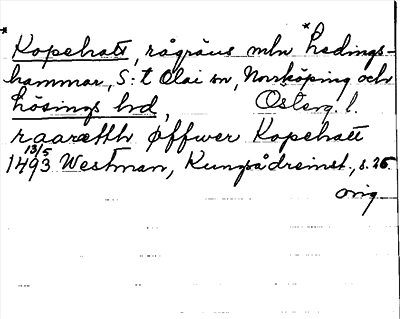 * Kopehatt, rågräns mln * Hedings-
hammar, S:t Olai sn, Norrköping och
Lösings hd, Österg. l.
raarætth øffwer Kopehatt
1493 13/5 Westman, Kungsådreinst., s. 25
orig.